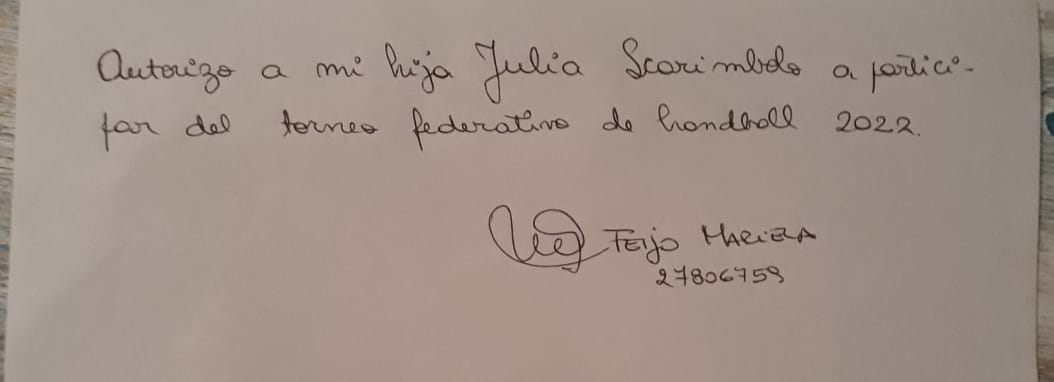 Autorizo a mi hija Julia Scorimbolo a partici-
par del torneo federativo de handball 2022.
FEIJO MARIELA
27806759